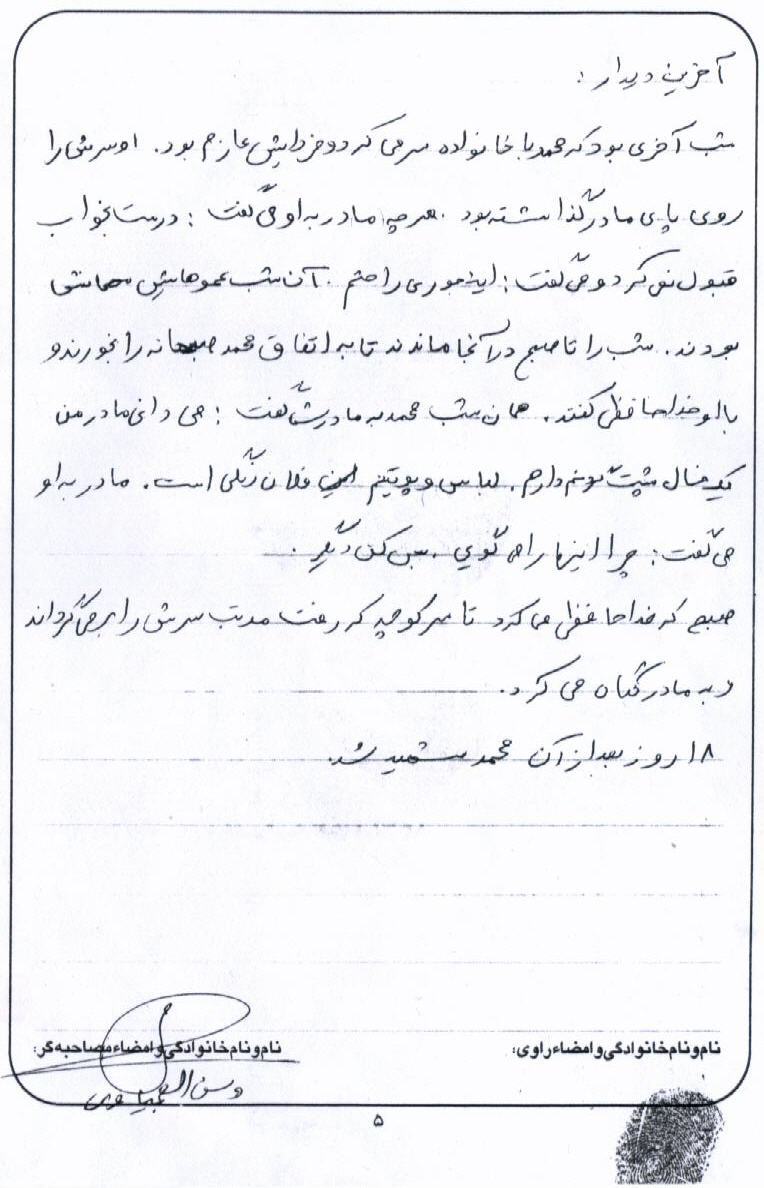 آخرین دیدار :
شب آخری بود که محمد با خانواده سر می کرد و فردایش عازم بود. او سرش را
روی پای مادر گذاشته بود. هر چه مادر به او می گفت : درست بخواب
قبول نمی کرد و می گفت : اینجوری راحتم. آن شب عموهایش مهمانش
بودند. شب را تا صبح در آنجا ماندند تا به اتفاق محمد صبحانه را بخورند و
با او خداحافظی کنند. همان شب محمد به مادرش گفت : می دانی مادر من
یک خال پشت گوشم دارم. لباس و پوتینم فلان رنگی است. مادر به او
می گفت : چرا اینها را می گویی. بس کن دیگر.
صبح که خداحافظی می کرد تا سر کوچه که رفت مدتب سرش را بر می گرداند
و به مادر نگاه می کرد.
۱۸ روز بعد از آن محمد شهید شد.
نام و نام خانوادگی و امضاء راوی:
نام و نام خانوادگی و امضاء مصاحبه گر:
۵